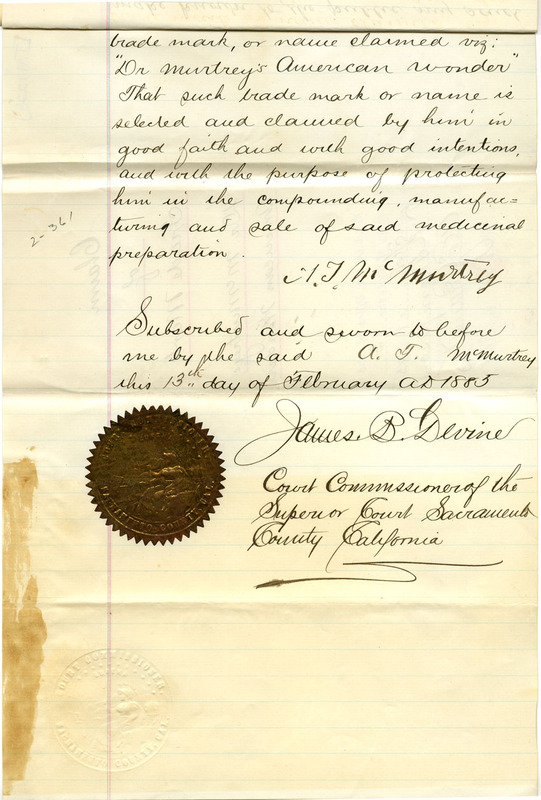 trade mark, or name claimed viz:
"Dr Murtrey's American Wonder"
That such trade mark or name is
selected and claimed by him in
good faith and with good intentions,
and with the purpose of protecting
him in the compounding, manufac=
turing and sale of said medicinal
preparation.
A. T. McMurtrey
Subscribed and sworn to before
me by the said A. T. McMurtrey
this 13th day of February AD 1885
James B. Devine
Court Commissioner of the
Superior Court Sacramento
County California
2-361
COURT COMMISSIONER
SACRAMENTO COUNTY, CAL.